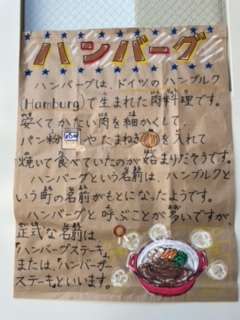 ハンバーグ
ハンバーグは、ドイツのハンブルク
(Hamburg)で生まれた肉料理です。
安くてかたい肉を細かくして、
パン粉やたまねぎを入れて
焼いて食べていたのが始まりだそうです。
ハンバーグという名前は、ハンブルクと
いう町の名前がもとになったようです。
ハンバーグと呼ぶことが多いですが
正式な名前は
「ハンバーグステーキ」
または、「ハンバーガー
ステーキ」といいます。